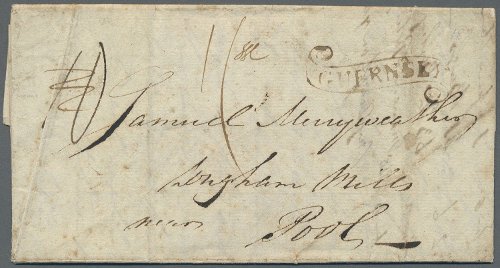 GUERNSE
Samuel Merryweather
Longham Mills
near
Pool